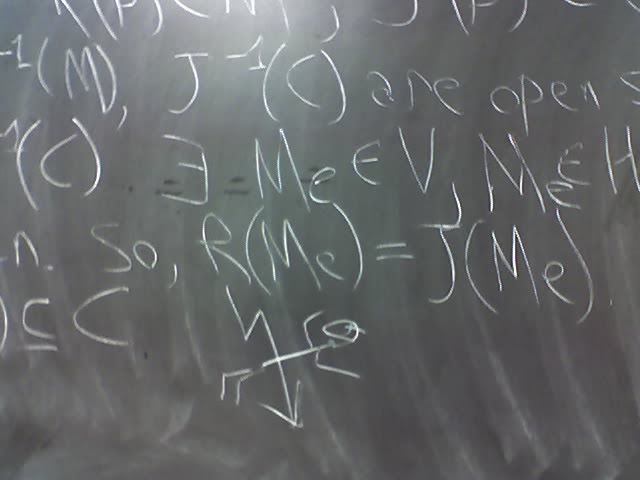 ⁻¹(M), J⁻¹(C) are open
⁻¹(C) ∃ Me ∈ V, Me ∈ H
n. So, R(Me) = J(Me)
) ⊆ C